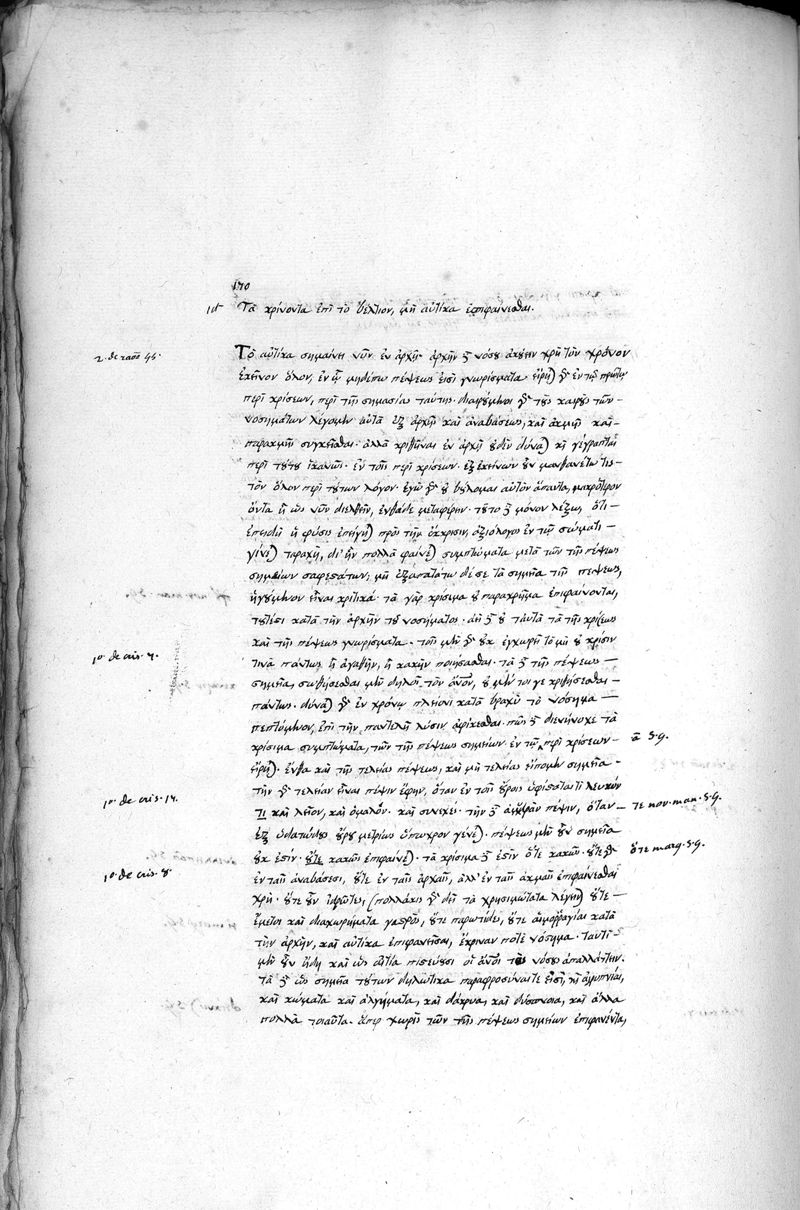 170
Τὰ κρίνοντα ἐπὶ τὸ βέλτιον, μὴ αὐτίκα ἐπιφαίνεσθαι.
Τὸ αὐτίκα σημαίνει νῦν ἐν ἀρχῇ· ἀρχὴν δὲ νόσου ἀκούειν χρὴ τὸν χρόνον
ἐκεῖνον ὅλον, ἐν ᾧ μηδέπω πέψεως εἰσὶ γνωρίσματα. εἴρηται γὰρ ἐν τῷ πρώτῳ
περὶ κρίσεων, περὶ τῆς σημασίας ταύτης. διαιρούμενοι γὰρ τοὺς καιροὺς τῶν
νοσημάτων λέγομεν αὐτὰ ἐξ ἀρχῆς καὶ ἀναβάσεως, καὶ ἀκμῆς καὶ
παρακμῆς συγκεῖσθαι. ἀλλὰ κριθῆναι ἐν ἀρχῇ οὐδὲν δύναται καὶ γέγραπται
περὶ τούτου ἱκανῶς· ἐν τοῖς περὶ κρίσεων. ἐξ ἐκείνων οὖν μανθανέτω τις
τὸν ὅλον περὶ τούτων λόγον. ἐγὼ γὰρ οὐ βούλομαι αὐτὸν ἅπαντα, μακρότερον
ὄντα ἢ ὡς νῦν διελθεῖν, ἐνθάδε μεταφέρειν. τοῦτο δὲ μόνον λέξω, ὅτι
ἐπειδὴ ἡ φύσις ἐπείγεται πρὸς τὴν ἔκκρισιν, ἀξιόλογος ἐν τῷ σώματι
γίνεται ταραχὴ, δι' ἣν πολλὰ φαίνεται συμπτώματα μετὰ τῶν τῆς πέψεως
σημείων σαφεστάτων. μὴ ἐξαπατάτω δέ σε τὰ σημεῖα τῆς πέψεως,
ἡγούμενον εἶναι κριτικά. τὰ γὰρ κρίσιμα οὐ παραχρῆμα ἐπιφαίνονται,
τουτέστι κατὰ τὴν ἀρχὴν τοῦ νοσήματος. ἀεὶ δὲ οὐ ταὐτὰ τὰ τῆς κρίσεως
καὶ τῆς πέψεως γνωρίσματα. τοῖς μὲν γὰρ οὐκ ἐγχωρεῖ τὸ μὴ οὐ κρίσιν
τινὰ πάντως ἢ ἀγαθὴν, ἢ κακὴν ποιήσασθαι. τὰ δὲ τῆς πέψεως
σημεῖα, σωθήσεσθαι μὲν δηλοῖ τὸν ἄνον, οὐ μήν τοι γε κριθήσεσθαι
πάντως. δύναται γὰρ ἐν χρόνῳ πλείονι κατὰ βραχὺ τὸ νόσημα
πεπτόμενον, ἐπὶ τὴν παντελῆ λύσιν ἀφικέσθαι. πῶς δὲ διενήνοχε τὰ
κρίσιμα συμπτώματα, τῶν τῆς πέψεως σημείων ἐν τῷ περὶ κρίσεων
εἴρηται. ἔνθα καὶ τῆς τελείας πέψεως, καὶ μὴ τελείας εἴπομεν σημεῖα.
τὴν γὰρ τελείαν εἶναι πέψιν ἔφην, ὅταν ἐν τοῖς οὔροις ὑφίσταταί τι λευκόν
τι καὶ λεῖον, καὶ ὁμαλόν. καὶ συνεχές. τὴν δὲ πέψιν, ὅταν
ἐξ ὑδατώδους οὔρου μετρίως ὕπωχρον γένηται. πέψεως μὲν οὖν σημεῖα
οὐκ ἐστὶν οὔτε κακῶς ἐπιφαίνεται. τὰ κρίσιμα δὲ ἐστὶν ὅτε κακῶς. οὔτε γὰρ
ἐν ταῖς ἀναβάσεσι, οὔτε ἐν ταῖς ἀρχαῖς, ἀλλ' ἐν ταῖς ἀκμαῖς ἐπιφαίνεσθαι
χρή. οὔτε οὖν ἱδρῶτες, (πολλάκις γὰρ δεῖ τὰ χρησιμώτατα λέγειν) οὔτε
ἔμετοι καὶ διαχωρήματα γαστρὸς, οὔτε παρωτίδες, οὔτε αἱμορραγίαι κατὰ
τὴν ἀρχὴν, καὶ αὐτίκα ἐπιφανεῖσαι, ἔκριναν ποτὲ νόσημα. ταυτὶ
μὲν οὖν ἤδη καὶ ὡς αἴτια πιστεύουσι οἱ ἄνοι τοῦ νόσου ἀπαλλάττειν.
τὰ δὲ ὡς σημεῖα τούτων δηλωτικὰ παραφροσύναι τε εἰσὶ, καὶ ἀγρυπνίαι,
καὶ κώματα καὶ ἀλγήματα, καὶ δάκρυα, καὶ δύσπνοια, καὶ ἄλλα
πολλὰ τοιαῦτα. ἅπερ χωρὶς τῶν τῆς πέψεως σημείων ἐπιφανέντα,
1o. de cris. 7.
1o. de cris. 14.
1o. de cris. 8
τε non. man. S.G.
ὅτε marg. S.G.